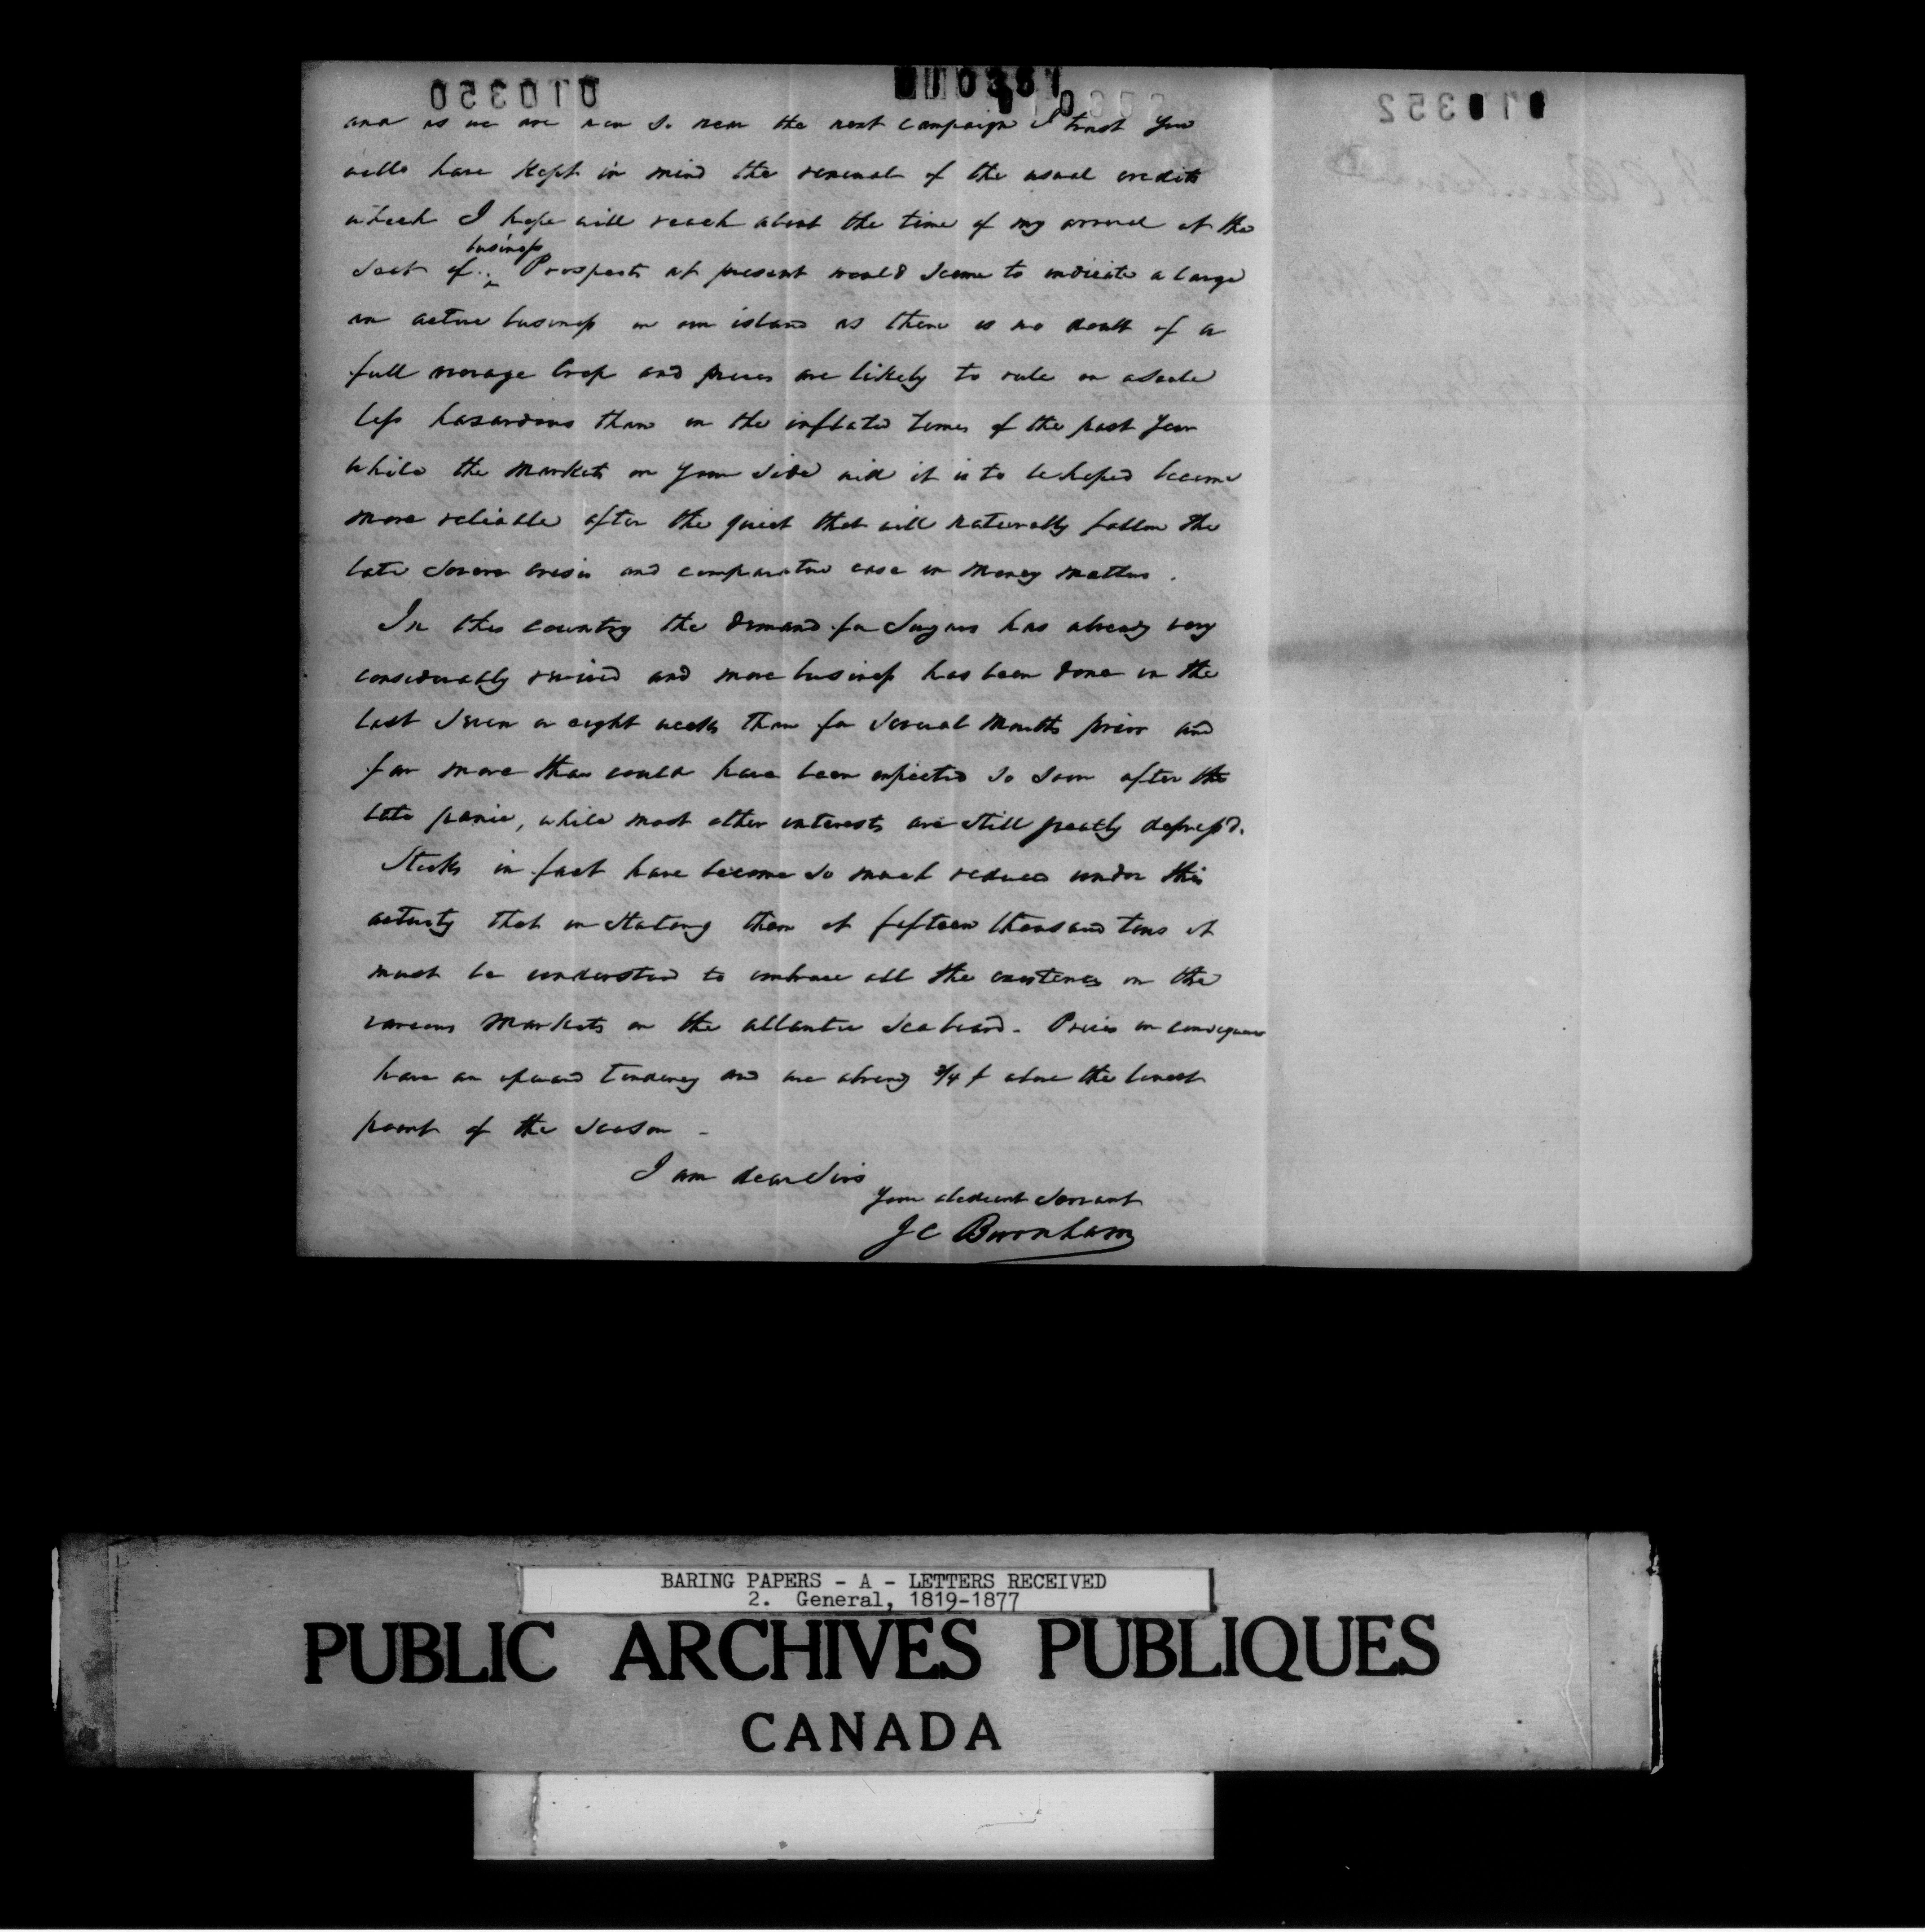 010350
010351
010352
and as we are now so near the next campaign I trust you
will have kept in mind the renewal of the usual credits
which I hope will reach about the time of my arrival at the
business
seat of Prospects at present would seem to indicate a large
an active business in our island as there is no doubt of a
full average Crop and prices are likely to rule on a scale
less hazardous than in the inflated times of the past year
while the markets on your side will it is to be hoped become
more reliable after the quiet that will naturally follow the
late severe crisis and comparative ease in money matters.
In this country the demand for Sugars has already very
considerably revived and more business has been done in the
last seven or eight weeks than for several months prior and
far more than could have been expected so soon after the
late panic, while most other interests are still greatly depress'd.
Stocks in fact have become so much reduced under this
activity that in stating them at fifteen thousand tons it
must be understood to embrace all the existences in the
various markets on the atlantic sea board - Prices in consequence
have an upward tendency and are already 3/4 ¢ above the lowest
point of the season -
I am dear Sirs
Your obedient servant
J C Burnham
BARING PAPERS - A - LETTERS RECEIVED
2. General, 1819-1877
PUBLIC ARCHIVES PUBLIQUES
CANADA